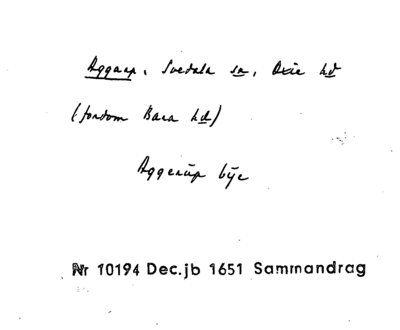 Aggarp, Svedala sn, Oxie hd
(fordom Bara hd)
Aggerup bÿe
Nr 10194 Dec.jb 1651 Sammandrag